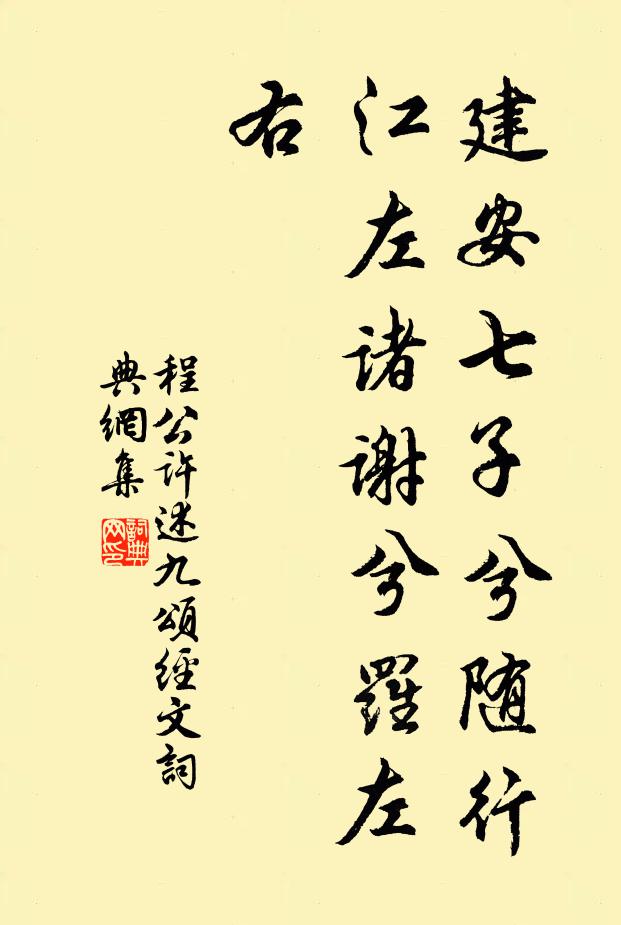 建安七子兮随行
江左诸谢兮羅左
右
程公许述九頌經文詞
典網集
詞典網印